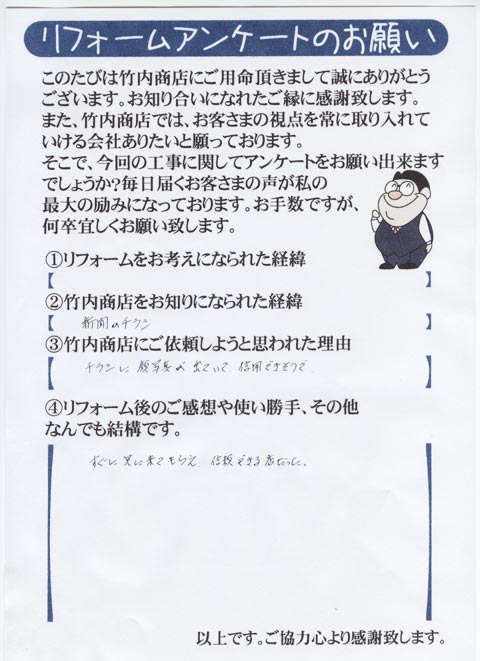 リフォームアンケートのお願い
このたびは竹内商店にご用命頂きまして誠にありがとう
ございます。お知り合いになれたご縁に感謝致します。
また、竹内商店では、お客さまの視点を常に取り入れて
いける会社ありたいと願っております。
そこで、今回の工事に関してアンケートをお願い出来ます
でしょうか?毎日届くお客さまの声が私の
最大の励みになっております。お手数ですが、
何卒宜しくお願い致します。
①リフォームをお考えになられた経緯
【 】
②竹内商店をお知りになられた経緯
【 新聞のチラシ 】
③竹内商店にご依頼しようと思われた理由
【 チラシに顔写真が出ていて、信用できそうで 】
④リフォーム後のご感想や使い勝手、その他
なんでも結構です。
【 すぐに見に来てもらえ、信頼できる店だった。 】
以上です。ご協力心より感謝致します。